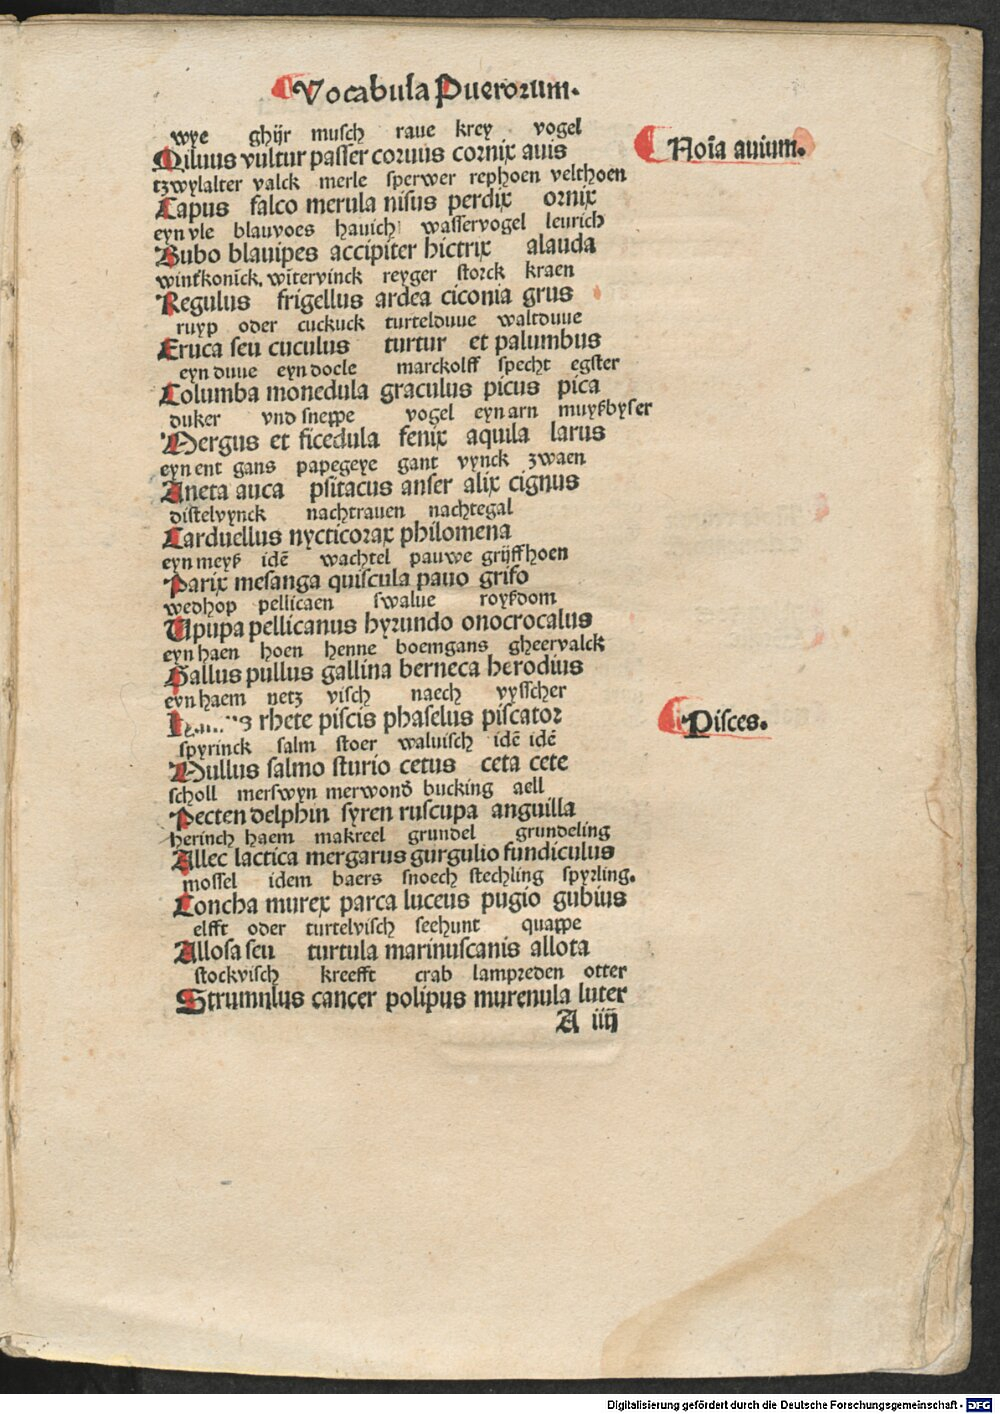 Vocabula Puerorum.
wye ghijr musch raue krey vogel
Miluus vultur passer coruus cornix auis
Noīa auium.
tzwylalter valck merle sperwer rephoen velthoen
Capus falco merula nisus perdix ornix
eyn vle blauvoes hauich wasservogel leurich
Bubo blauipes accipiter hictrix alauda
wintkonīck. wītervinck reyger storck kraen
Regulus frigellus ardea ciconia grus
ruyp oder cuckuck turtelduue waltduue
Eruca seu cuculus turtur et palumbus
eyn duue eyn docle marckolff specht egster
Columba monedula graculus picus pica
duker vnd sneppe vogel eyn arn muyßbyser
Mergus et ficedula fenix aquila larus
eyn ent gans papegeye gant vynck zwaen
Aneta auca psitacus anser alix cignus
distelvynck nachtrauen nachtegal
Carduellus nycticorax philomena
eyn meyß idē wachtel pauwe grijffhoen
Parix mesanga quiscula pauo grifo
wedhop pellicaen swalue royßdom
Upupa pellicanus hyrundo onocrocalus
eyn haen hoen henne boemgans gheervalck
Gallus pullus gallina berneca herodius
eyn haem netz visch naech vysscher
rhete piscis phaselus piscator
Pisces.
spyrinck salm stoer waluisch idē idē
Mullus salmo sturio cetus ceta cete
scholl merswyn merwond bucking aell
Pecten delphin syren ruscupa anguilla
herinch haem makreel grundel grundeling
Allec lactica mergarus gurgulio fundiculus
mossel idem baers snoech stechling spyrling.
Concha murex parca luceus pugio gubius
elfft oder turtelvisch seehunt quappe
Allosa seu turtula marinuscanis allota
stockvisch kreefft crab lampreden otter
Strumulus cancer polipus murenula luter
A iiij
Digitalisierung gefördert durch die Deutsche Forschungsgemeinschaft - DFG